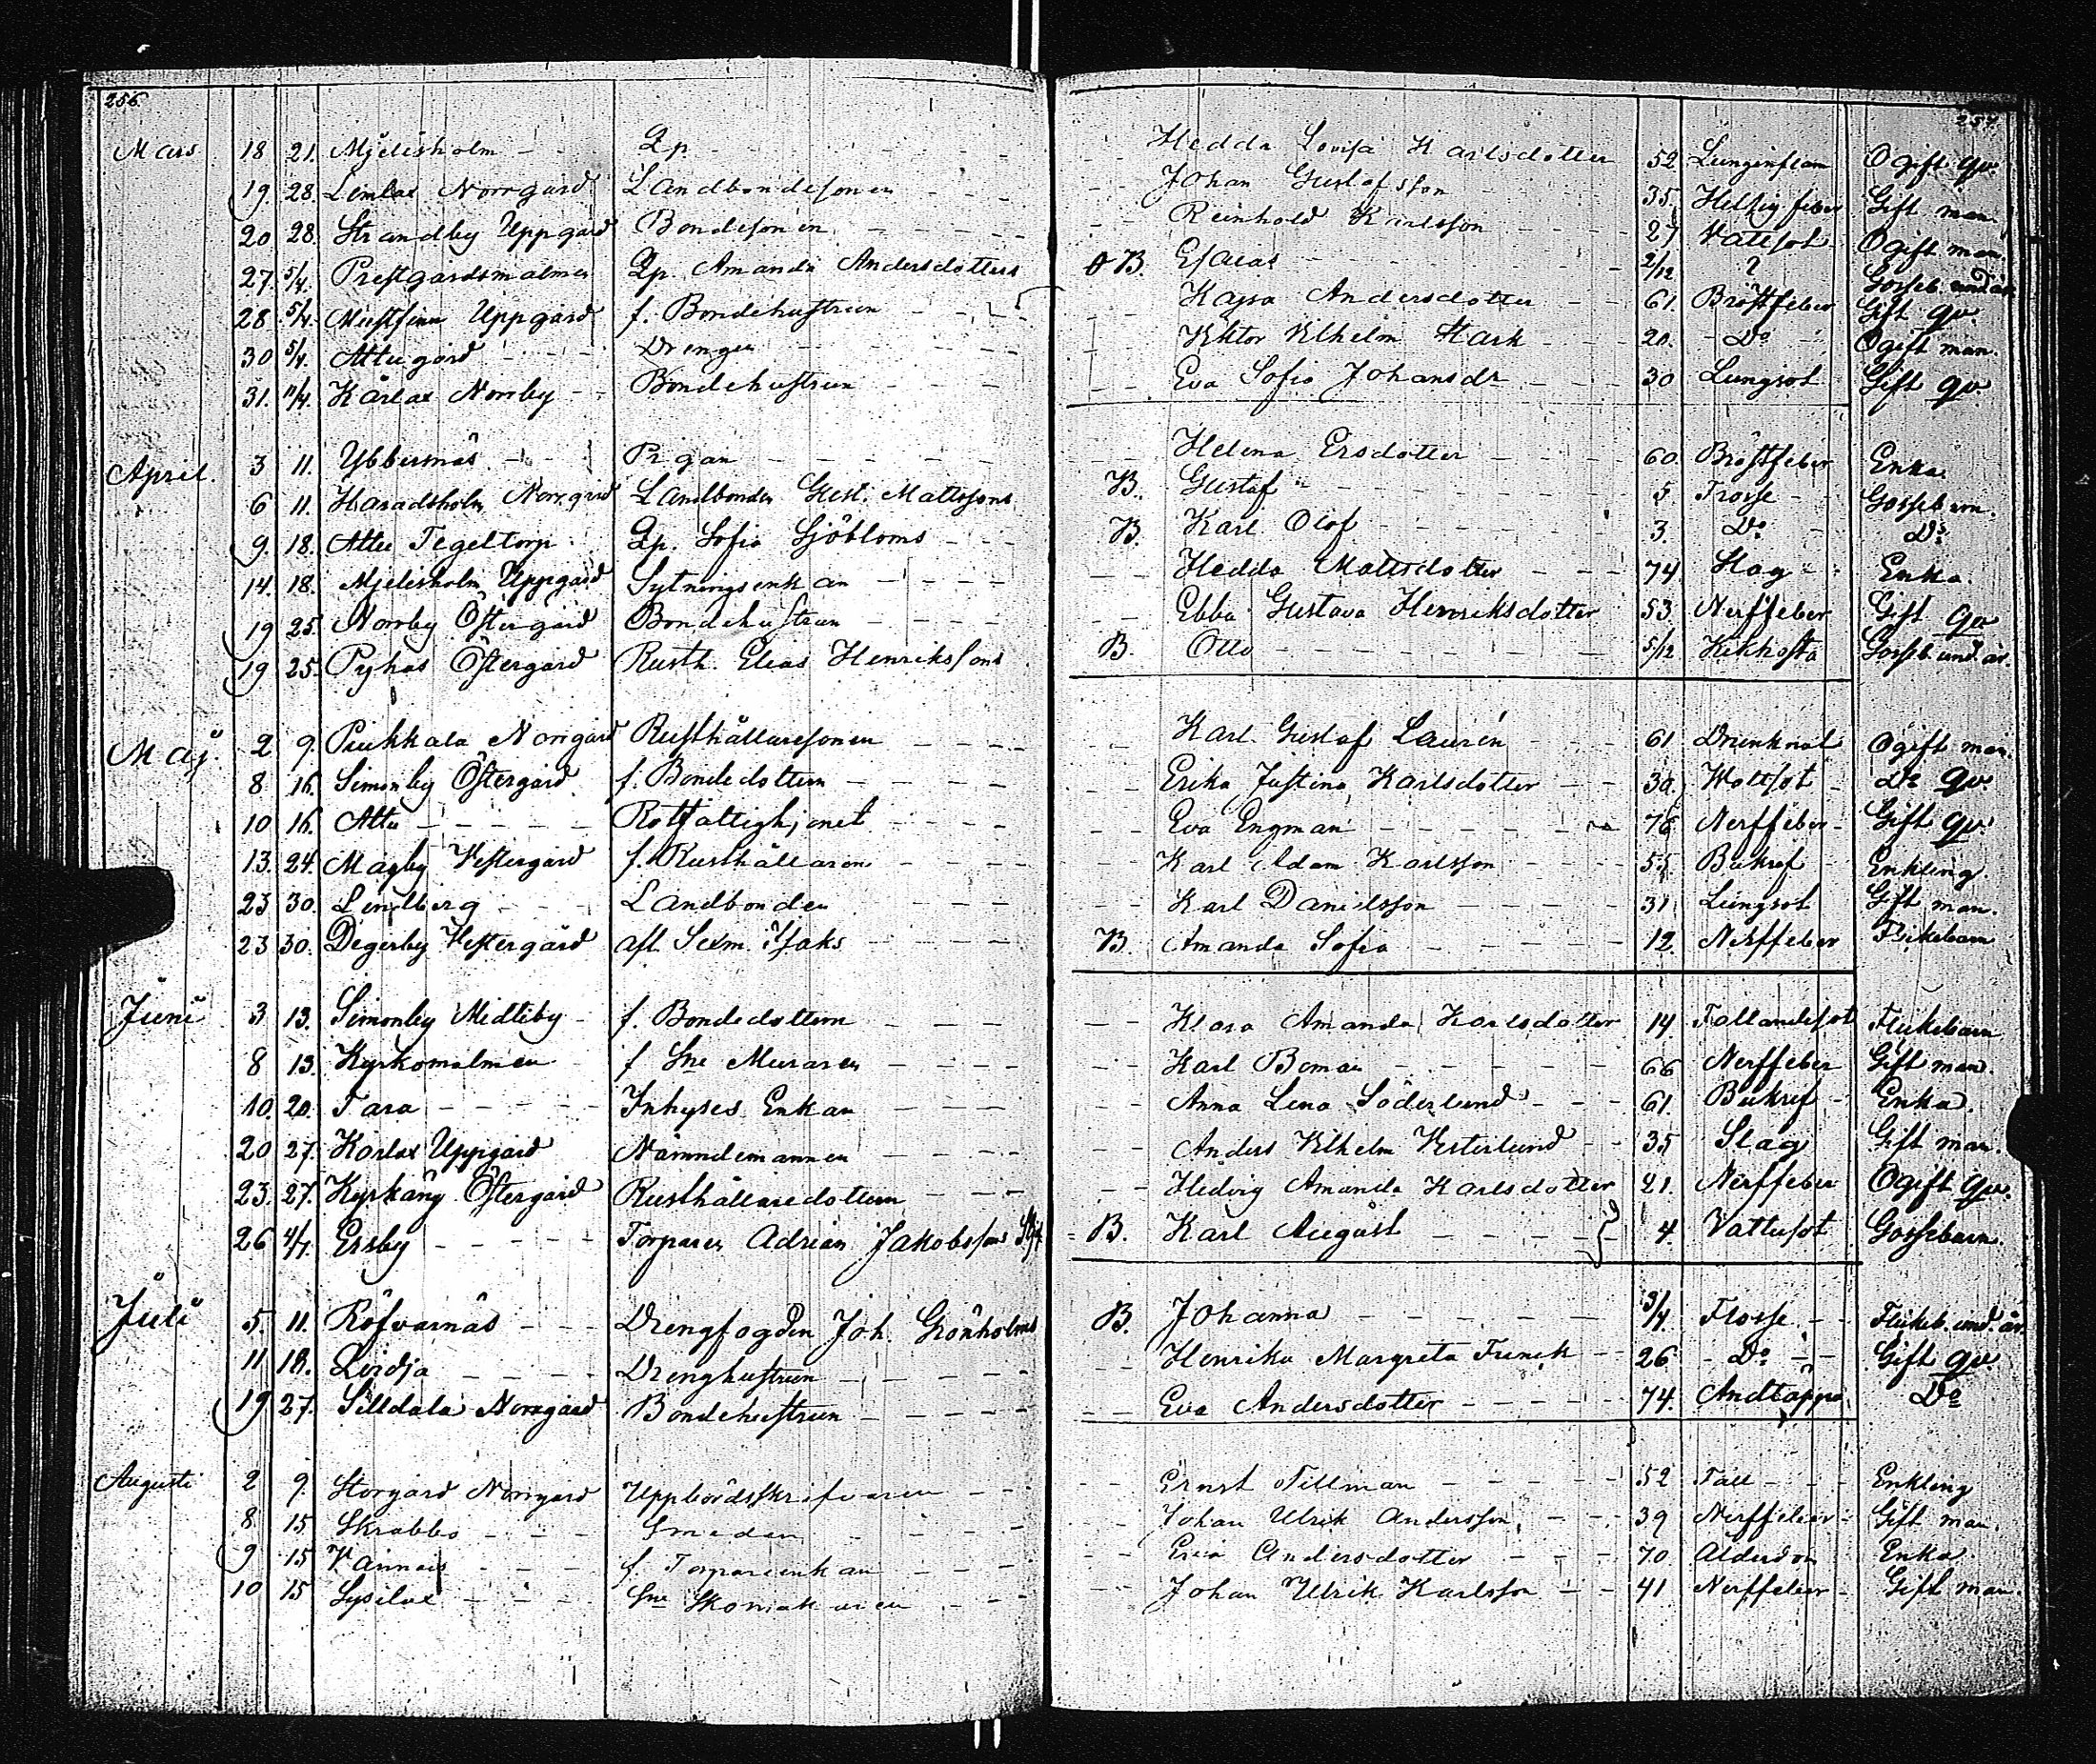 256. 257
Mars 18 21. Mjelisholm - - Qp - - - Hedda Lovisa Karlsdotter 52 Lunginflam Ogift qv.
19. 28. Lemlax Norrgård Landbondesonen - - Johan Gustafsson - - 35. Hetsig feber Gift man.
20 28. Strandby Uppgård Bondesonen - - Reinhold Karlsson - - 27 Vattsot Ogift man.
27. 5/4. Prestgårdsmalmen Qp. Amanda Andersdotters B. Esaias - - 2/12 ? Gosseb. und. år
28. 5/4. Uppgård f. Bondehustrun - - Kajsa Andersdotter - - 61. Bröstfeber Gift qv.
30 5/4. Attugård - - Drengen - - Viktor Vilhelm Stark - - 20. Do Ogift man.
31. 11/4. Kårlax Norrby - - Bondehustrun - - Eva Sofia Johansdr - - 30 Lungsot Gift qv.
April. 3 11. Ybbersnäs - - Pigan - - Helena Ersdotter - - 60. Bröstfeber Enka.
6 11. Haradsholm Norrgård Landbonden Gust. Mattssons B. Gustaf - - 5 Trosse - Gossebarn.
9. 18. Attu Tegeltorp Qp. Sofia Sjöbloms - - B. Karl Olof - - 3. Do - Do
14. 18. Mjelisholm Uppgård Sytningsenkan - - Hedda Mattsdotter - - 74 Slag - Enka.
19 25. Norrby Östergård Bondehustrun - - Ebba Gustava Henriksdotter 53. Nerffeber Gift qv
19 25. Pyhas Östergård Rusth. Elias Henrikssons B. Otto - - 5/12 Kikhosta Gosseb. und. år.
Maj. 2 9. Piukkala Norrgård Rusthållaresonen - - Karl Gustaf Laurén - - 61 Drunknat Ogift man.
8 16. Simonby Östergård f. Bondedottern - - Erika Justina Karlsdotter - - 30. Vattsot - do qv.
10 16. Attu - - Rotfattighjonet - - Eva Engman - - 76 Nerffeber - Gift qv.
13. 24. Mågby Vestergård f. Rusthållaren - - Karl Adam Karlsson - - 55 Bukref - Enkling.
23 30. Lindberg - - Landbonden - - Karl Danielsson - - 31 Lungsot Gift man.
23 30. Degerby Vestergård afl. Sexm. Isaks - - B. Amanda Sofia - - 12. Nerffeber Flickebarn
Juni 3 13. Simonby Midtiby f. Bondedottern - - Klara Amanda Karlsdotter 14 Fallandesot Flickebarn
8 13. Kyrkomalmen f. Sne Muraren - - Karl Boman - - 66 Nerffeber Gift man.
10. 20. Tara - - Inhyses Enkan - - Anna Lena Söderlund - - 61. Bukref - Enka.
20 27. Kårlax Uppgård Nämndemannen - - Anders Vilhelm Vesterlund - - 35 Slag Gift man.
23. 27. Kyrkäng Östergård Rusthållaredottern - - Hedvig Amanda Karlsdotter 21. Nerffeber Ogift qv.
26 4/7. Ersby - - Torparen Adrian Jakobssons B. Karl August - - 4 Vattusot Gossebarn.
Juli 5. 11. Röfvarnäs - - Drengfogden Joh. Grönholms B. Johanna - - 3/4 Trosse - Flickeb. und. år.
11 18. Loidja - - Drenghustrun - - Henrika Margreta Funck - 26 - Do - Gift qv
19 27. Silldala Norrgård Bondehustrun - - Eva Andersdotter - - 74. Andtäppa Do
Augusti 2 9. Storgård Norrgård Uppbördsskrifvaren - - Ernst Tillman - - 52 Fall - - Enkling
8 15 Skräbbo - - Smeden - - Johan Ulrik Andersson - - 39 Nerffeber - Gift man.
9 15 Vännais - - f. Torpareenkan - - Eva Andersdotter - - 70. Ålderdom Enka.
10 15 Sysilax - - Sne Skomakaren - - Johan Ulrik Karlsson - - 41 Nerffeber - Gift man.